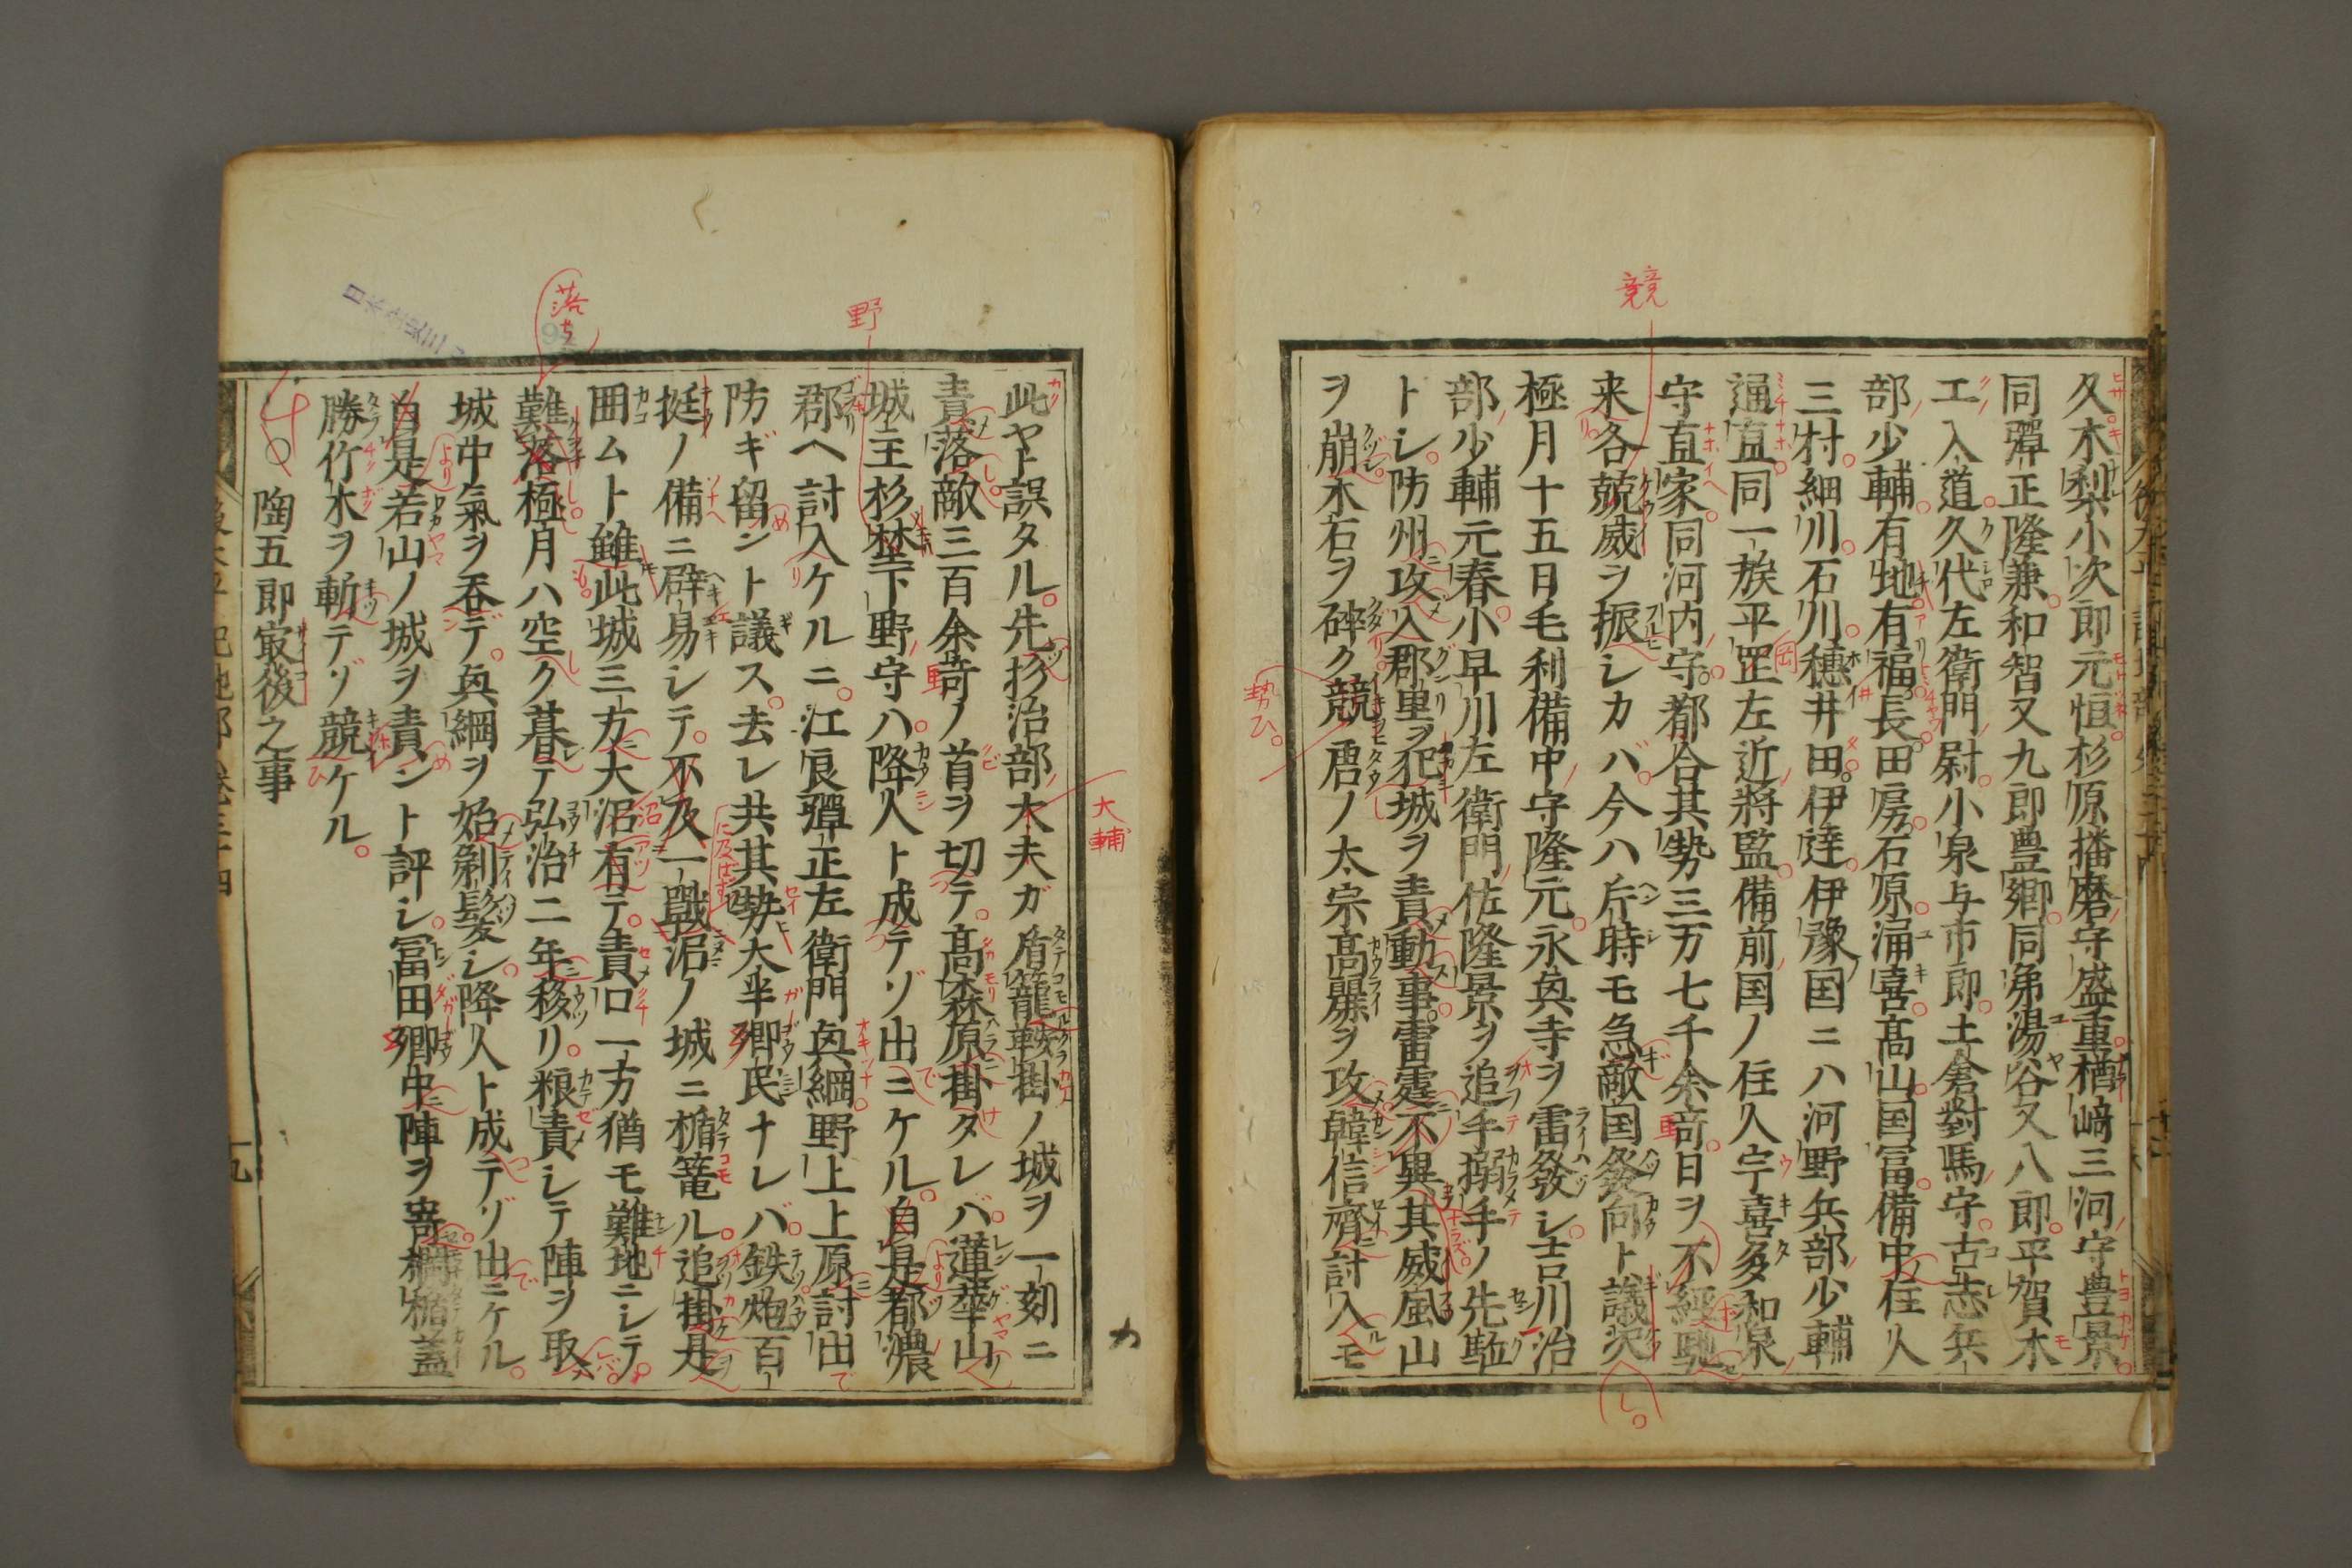 久木梨小次郎元恒杉原播磨守盛重楢﨑三河守豊景
同彈正隆兼和智又九郎豊郷同弟湯谷又八郎平賀木
工入道久代左衛門尉小泉与市郎土倉對馬守古志兵
部少輔有地有福長田房石原涌喜髙山国冨備中住人
三村細川石川穂井田伊達伊豫国ニハ河野兵部少輔
通直同一族平罡左近將監備前国ノ住人宇喜多和泉
守直家同河内守都合其勢三万七千余竒日ヲ不経馳
来各競威ヲ振シカバ今ハ片時モ急敵国發向ト議沢
極月十五日毛利備中守隆元永興寺ヲ雷發シ吉川治
部少輔元春小早川左衛門佐隆景ヲ追手搦手ノ先駈
トシ防州攻入郡里ヲ犯城ヲ責動事雷霆不異其威風山
ヲ崩木石ヲ砕ク競唐ノ太宗髙麗ヲ攻韓信齊討入モ
競
勢ひ。
此ヤト誤タル先杉治部大夫ガ盾籠鞍掛ノ城ヲ一刻ニ
責落敵三百余竒ノ首ヲ切テ髙森原掛タレバ蓮華山
城主杉埜下野守ハ降人ト成テゾ出ニケル自是都濃
郡ヘ討入ケルニ江良彈正左衛門興綱野上上原討出
防ギ留ント議ス去レ共其勢大半郷民ナレバ鉄炮百
挺ノ備ニ辟易シテ不及一戰沼ノ城ニ楯篭ル追掛是
囲ムト雖此城三方大沼有テ責口一方猶モ難地ニシテ
難落極月ハ空ク暮テ弘治二年移リ粮責シテ陣ヲ取
城中氣ヲ呑デ興綱ヲ始剃髪シ降人ト成テゾ出ニケル
自是若山ノ城ヲ責ント評シ冨田郷中陣ヲ寄欄楯蓋
勝竹木ヲ斬テゾ競ケル
〇陶五郎冣後之事
大輔
野
落ち
十九
カ